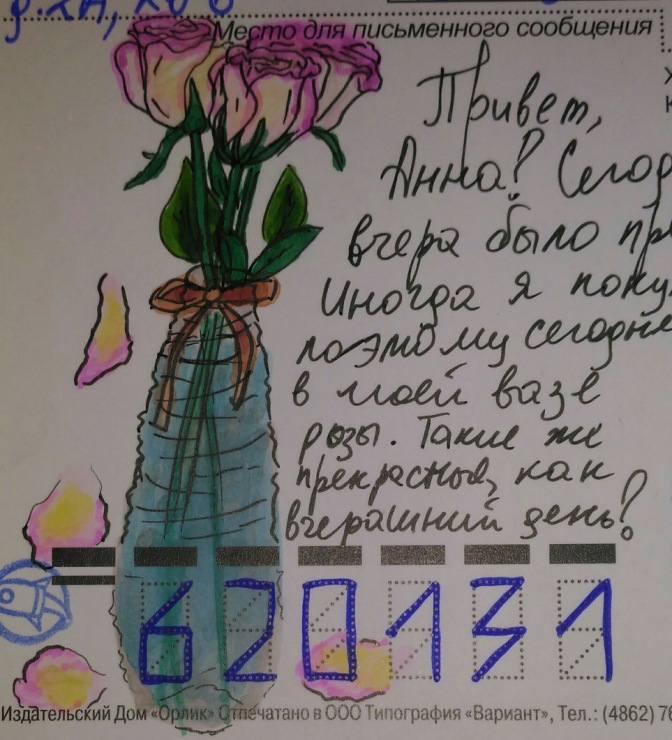 Место для письменного сообщения
Привет,
Анна! Сегод
вчера было пр
Иногда я поку
поэтому сегодня
в моей вазе
розы. Такие же
прекрасные, как
вчерашний день!
620131
Издательский Дом «Орлик» Отпечатано в ООО Типография «Вариант», Тел.: (4862) 76